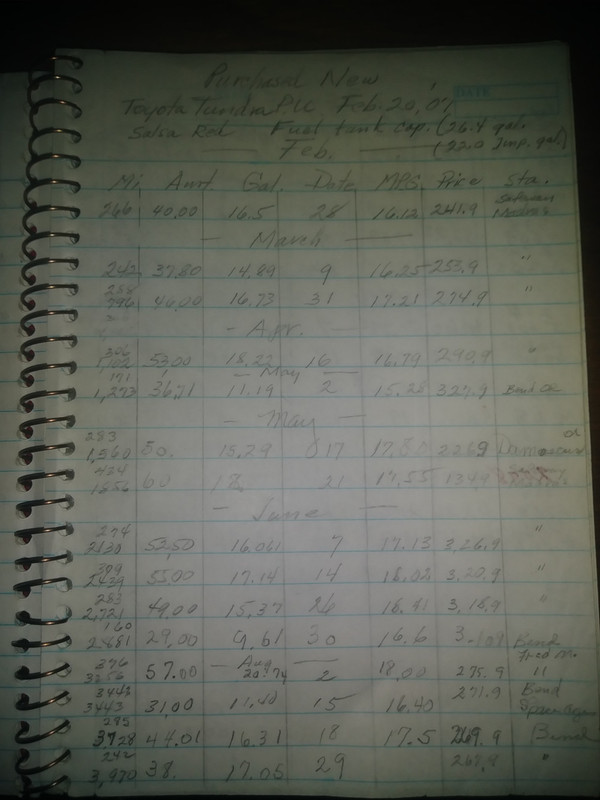 Purchased New
DATE
Toyota Tundra PU, Feb. 20, '07
Salsa Red Fuel tank cap. (26.4 gal.
Feb. (22.0 Imp. gal.)
Mi. Amt. Gal. Date MPG. Price Sta.
266 40.00 16.5 28 16.12 241.9
— March —
242 37.80 14.89 9 16.25 253.9 "
288
796 46.00 16.73 31 17.21 274.9 "
- Apr. -
306
1,102 53.00 18.22 16 16.79 290.9 "
— May —
171
1,273 36.71 11.19 2 15.28 327.9 Bend OR
- May -
283
1,560 50. 15.29 17
1856 60 18. 21 17.55
- June -
274
2130 52.50 16.061 7 17.13 3.26.9 "
309
2439 55.00 17.14 14 18.02 3.20.9 "
283
2,721 49.00 15.37 26 18.41 3,18.9 "
160
2,881 29.00 9.61 30 16.6 Bend
Fred M.
- Aug -
376
3256 57.00 20.74 2 18.00 275.9 "
3442
3443 31.00 11.40 15 16.40 271.9 Bend
285
3,728 44.01 16.31 18 17.5 269.9 Bend
242
3,970 38. 17.05 29 267.9 "